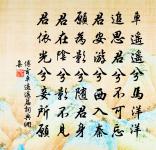 車遙遙兮馬洋洋
追思君兮不可忘
君安游兮西入秦
願為影兮隨君身
君在陰兮影不見
君依光兮妾所願
傅玄車遙遙篇詞典網
集